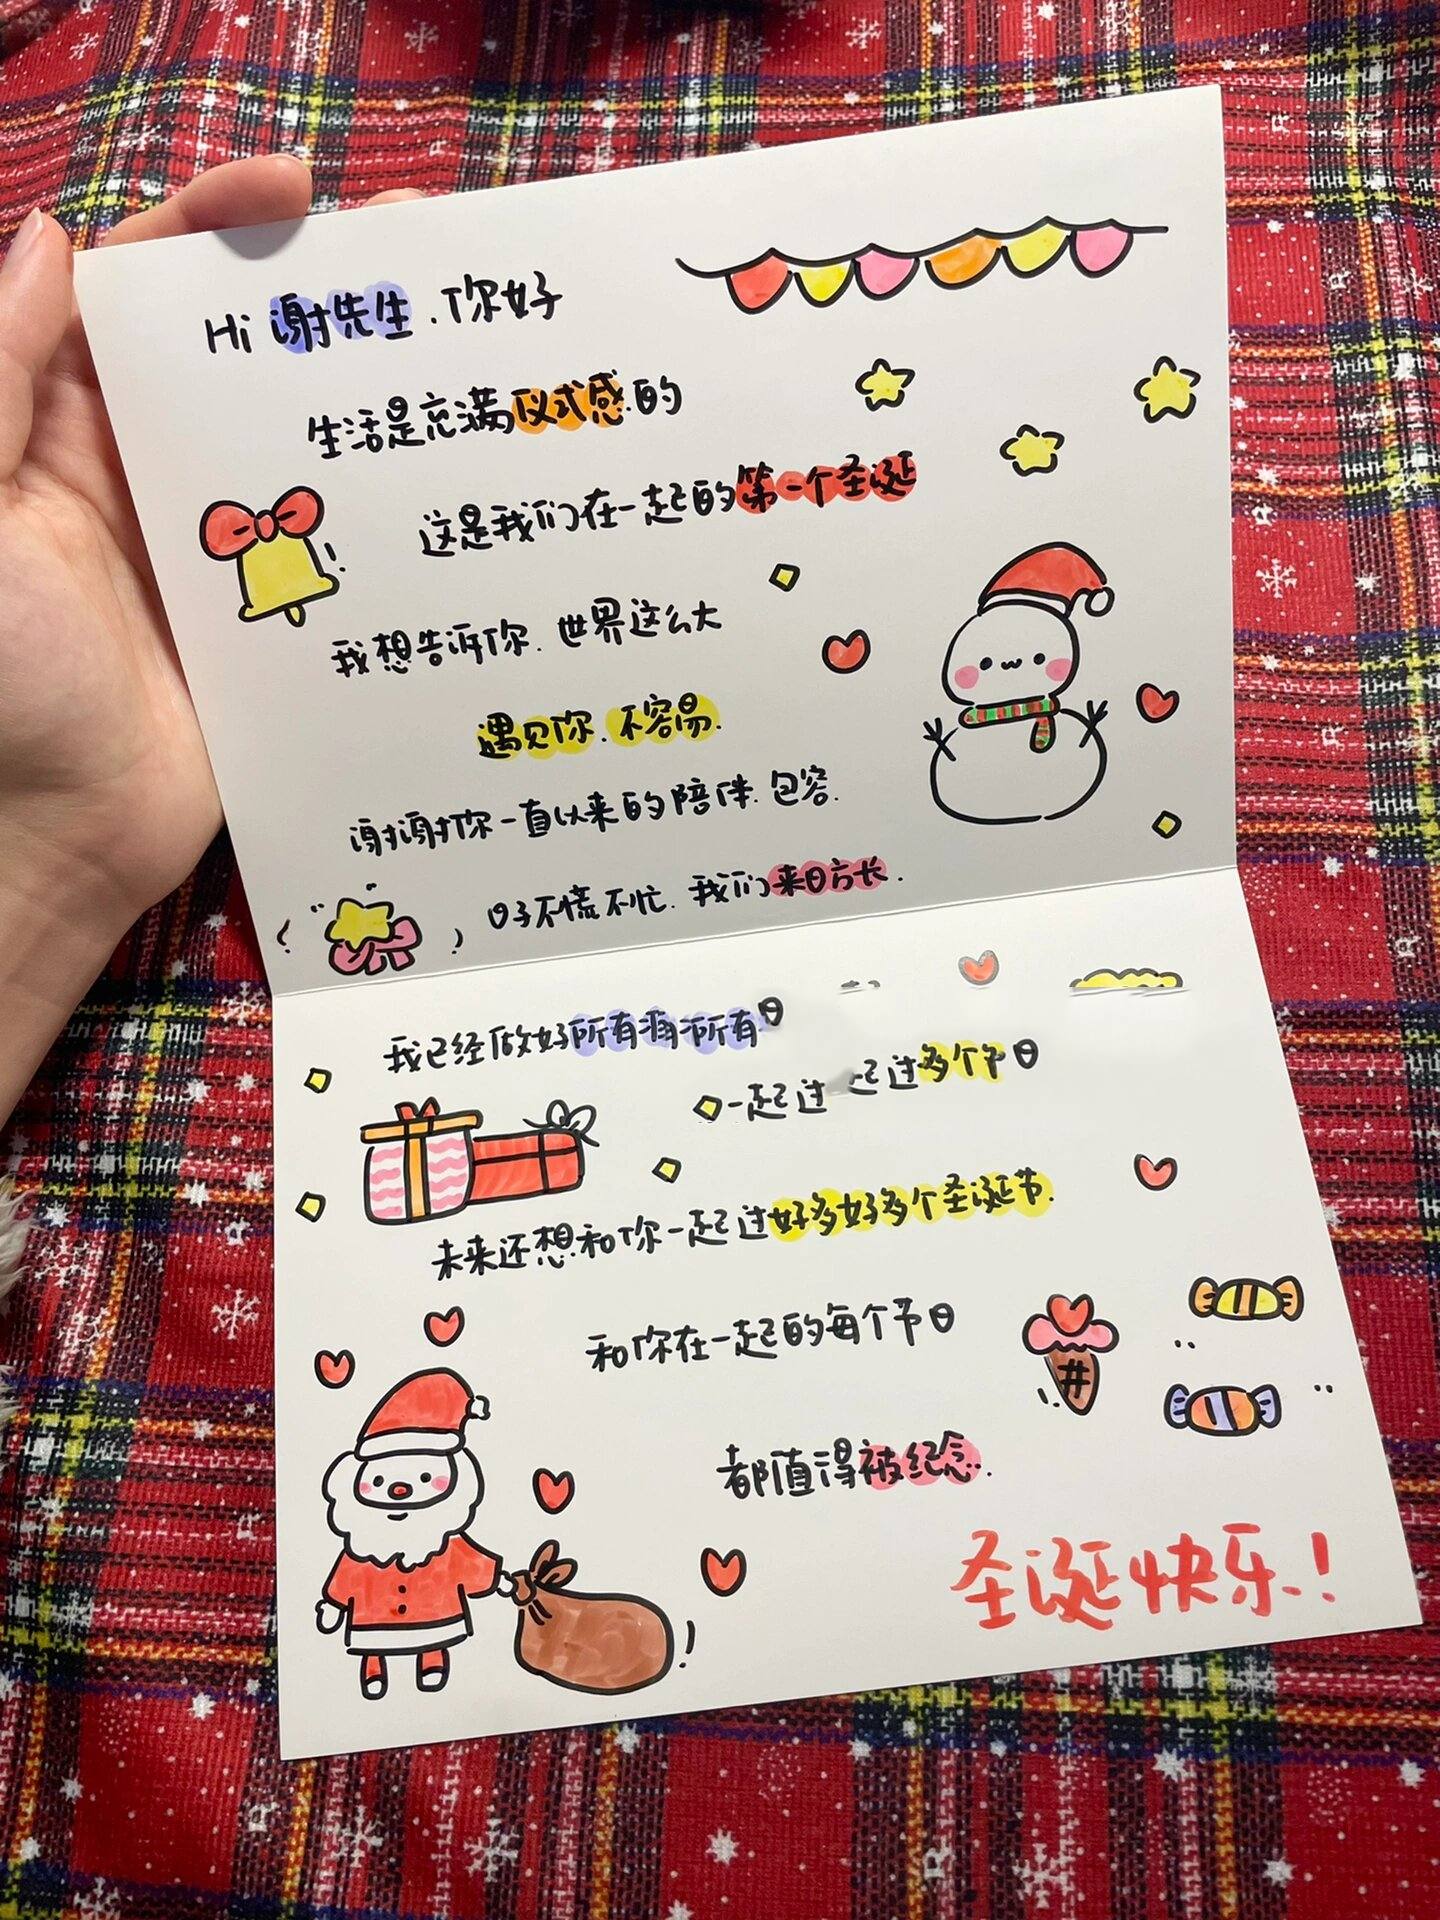 Hi 谢先生.你好
生活是充满仪式感的
这是我们在一起的第一个圣诞
我想告诉你.世界这么大
遇见你.不容易.
谢谢你一直以来的陪伴.包容.
日子不慌不忙.我们来日方长.
我已经做好所有 所有日
一起过 起过多个节日
未来还想和你一起过好多好多个圣诞节.
和你在一起的每个节日
都值得被纪念.
圣诞快乐.!